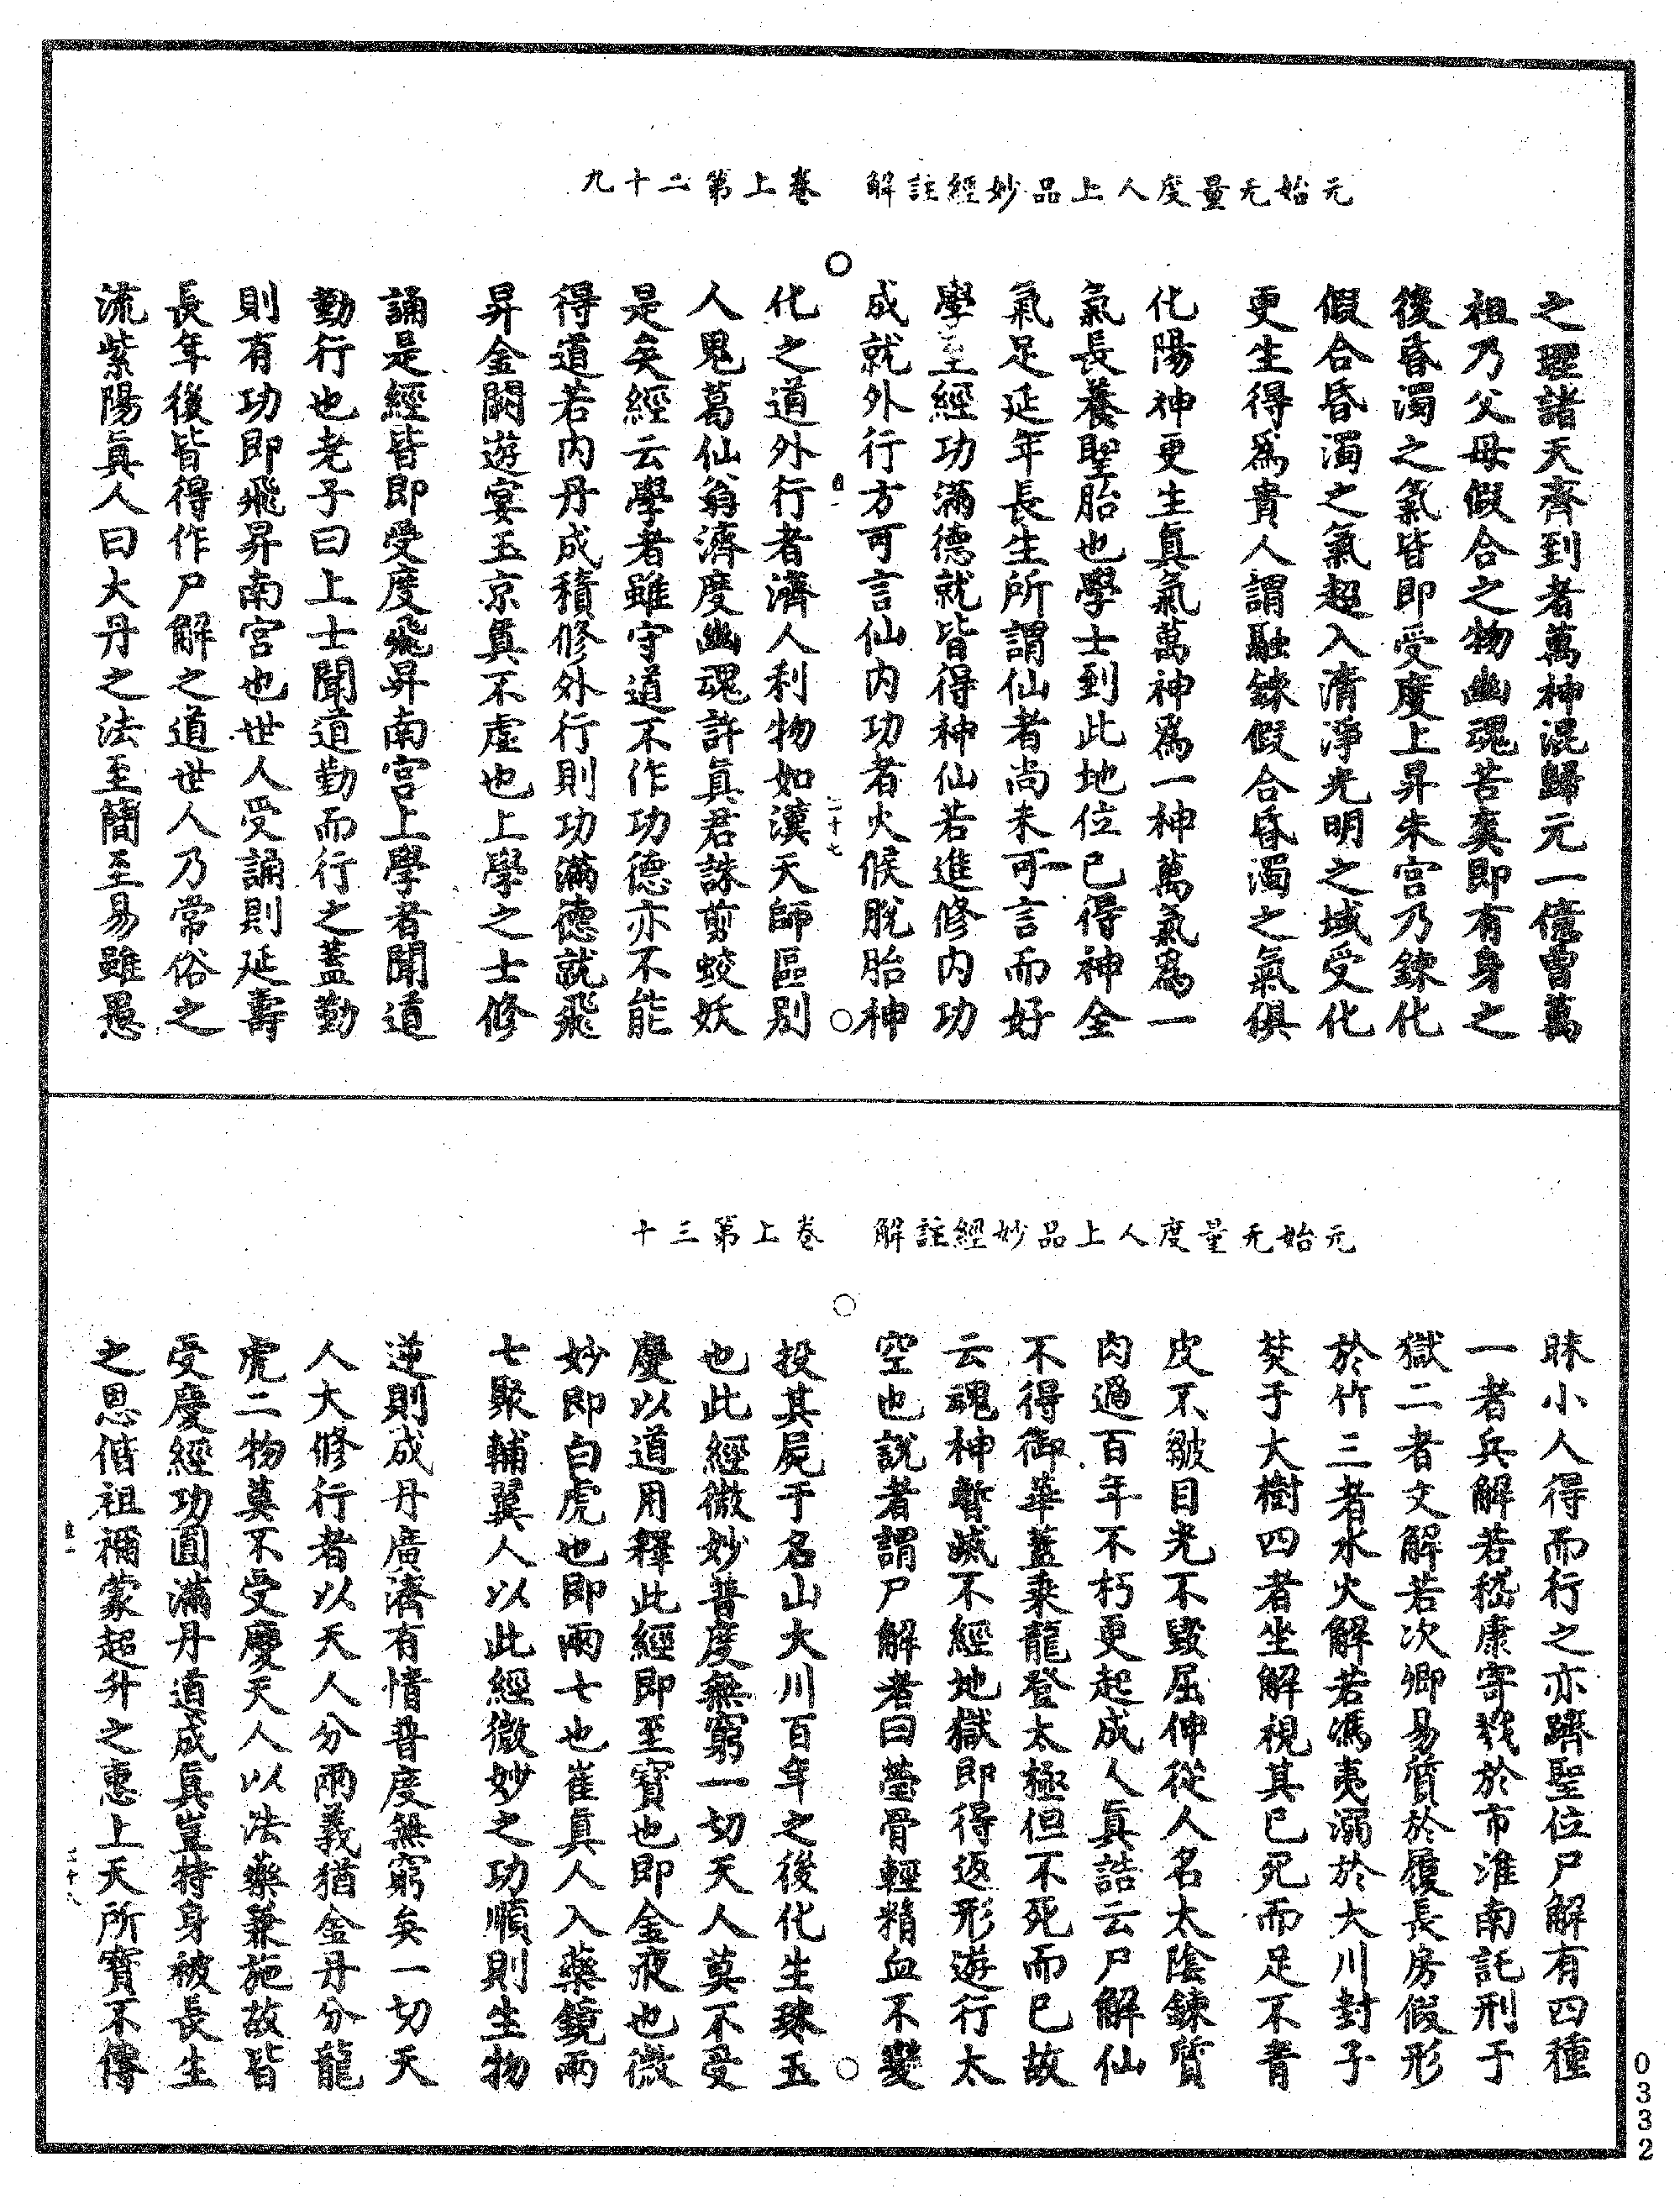 元始无量度人上品妙經註解　卷上第二十九
之理諸天齊到者萬神混歸元一億曾萬
祖乃父母假合之物幽魂苦爽即有身之
後昏濁之氣皆即受度上昇朱宮乃鍊化
假合昏濁之氣超入清淨光明之域受化
更生得爲貴人謂融鍊假合昏濁之氣俱
化陽神更生真氣萬神爲一神萬氣爲一
氣長養聖胎也學士到此地位已得神全
氣足延年長生所謂仙者尚未可言而好
學至經功滿德就皆得神仙若進修內功
成就外行方可言仙內功者火候脫胎神
二十七
化之道外行者濟人利物如漢天師區別
人鬼葛仙翁濟度幽魂許真君誅剪蛟妖
是矣經云學者雖守道不作功德亦不能
得道若內丹成積修外行則功滿德就飛
昇金闕遊宴玉京真不虛也上學之士修
誦是經皆即受度飛昇南宮上學者聞道
勤行也老子曰上士聞道勤而行之蓋勤
則有功即飛昇南宮也世人受誦則延壽
長年後皆得作尸解之道世人乃常俗之
流紫陽真人曰大丹之法至簡至易雖愚
元始无量度人上品妙經註解　卷上第三十
昧小人得而行之亦躋聖位尸解有四種
一者兵解若嵇康寄戮於市淮南託刑于
獄二者文解若次卿易質於履長房假形
於竹三者水火解若馮夷溺於大川封子
焚于大樹四者坐解視其已死而足不青
皮不皺目光不毀屈伸從人名太陰鍊質
肉過百年不朽更起成人真誥云尸解仙
不得御華蓋乘龍登太極但不死而已故
云魂神暫滅不經地獄即得返形遊行太
空也說者謂尸解者曰瑩骨輕精血不變
投其屍于名山大川百年之後化生珠玉
也此經微妙普度無窮一切天人莫不受
慶以道用釋此經即至寶也即金液也微
妙即白虎也即兩七也崔真人入藥鏡兩
七聚輔翼人以此經微妙之功順則生物
逆則成丹廣濟有情普度無窮矣一切天
人大修行者以天人分兩義猶金丹分龍
虎二物莫不受慶天人以法藥兼施故皆
受慶經功圓滿丹道成真豈特身被長生
之恩偕祖禰蒙超升之惠上天所寶不傳
二十八
0332